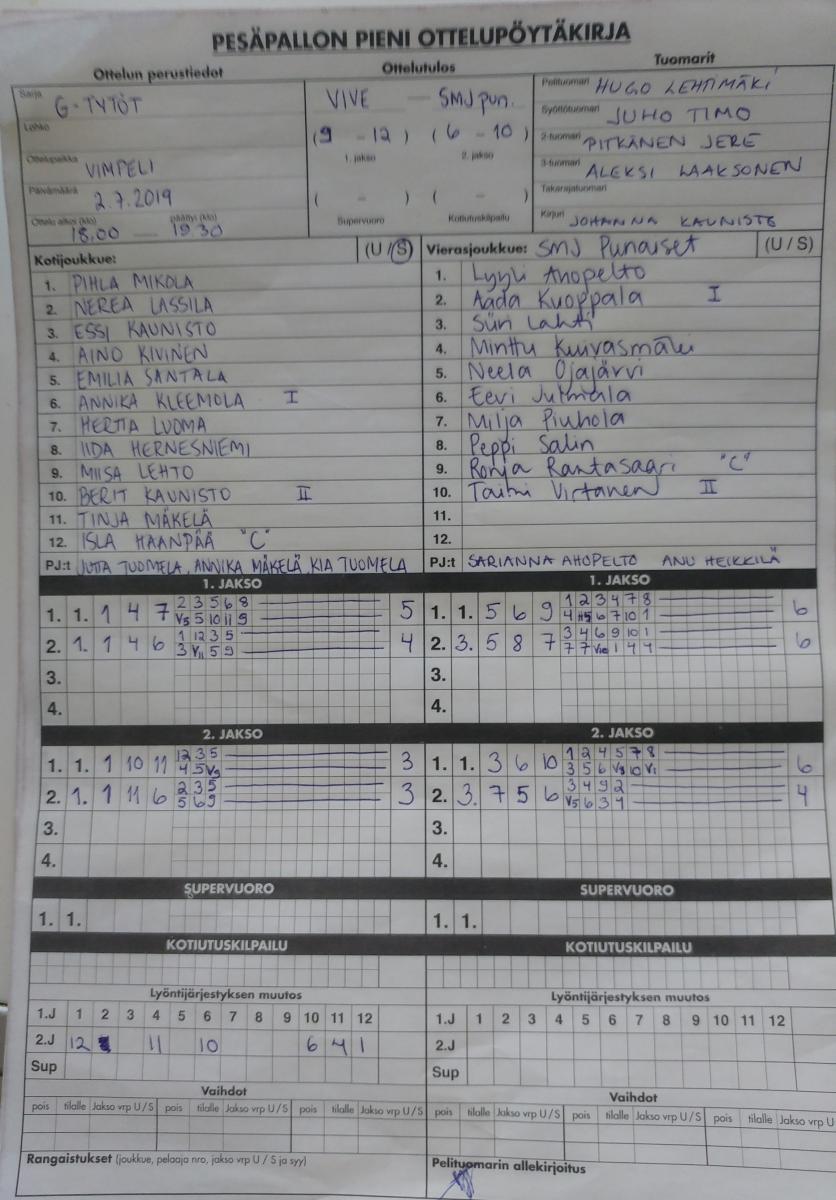 PESÄPALLON PIENI OTTELUPÖYTÄKIRJA
Ottelun perustiedot Ottelutulos Tuomarit
Sarja G-TYTÖT
Lohko
Ottelupaikka VIMPELI
Päivämäärä 2.7.2019
Ottelu alkoi (klo) päättyi (klo)
18.00 — 19.30
VIVE — SMJ pun.
(9 - 12) (6 - 10)
1. jakso 2. jakso
( - ) ( - )
Supervuoro Kotiutuskilpailu
Pelituomari HUGO LEHTIMÄKI
Syöttötuomari JUHO TIMO
2-tuomari PITKÄNEN JERE
3-tuomari ALEKSI LAAKSONEN
Takarajatuomari
Kirjuri JOHANNA KAUNISTO
Kotijoukkue: (U / S)
1. PIHLA MIKOLA
2. NEREA LASSILA
3. ESSI KAUNISTO
4. AINO KIVINEN
5. EMILIA SANTALA
6. ANNIKA KLEEMOLA I
7. HERTTA LUOMA
8. IIDA HERNESNIEMI
9. MIISA LEHTO
10. BERIT KAUNISTO II
11. TINJA MÄKELÄ
12. ISLA HAANPÄÄ "C"
PJ:t JUTTA TUOMELA, ANNIKA MÄKELÄ, KIA TUOMELA
Vierasjoukkue: SMJ Punaiset (U / S)
1. Lyyli Ahopelto
2. Aada Kuoppala I
3. Siiri Lahti
4. Minttu Kuivasmäki
5. Neela Ojajärvi
6. Eevi
7. Milja Piuhola
8. Peppi Salin
9. Ronja Rantasaari "C"
10. Taimi Virtanen II
11.
12.
PJ:t SARIANNA AHOPELTO ANU HEIKKILÄ
1. JAKSO
1. 1. 1 4 7 2 3 5 6 8 5
V5 5 10 11 9
2. 1. 1 4 6 1 12 3 5 4
3 V11 5 9
3.
4.
1. JAKSO
1. 1. 5 6 9 1 2 3 4 7 8 6
4 6 7 10 1
2. 3. 5 8 7 3 4 6 9 10 1 6
7 7 V10 1 4 4
3.
4.
2. JAKSO
1. 1. 1 10 11 12 3 5 3
4 5 V9
2. 1. 1 11 6 2 3 5 3
5 6 9
3.
4.
2. JAKSO
1. 1. 3 6 10 1 2 4 5 7 8 6
3 5 6 V8 10 V1
2. 3. 7 5 6 3 4 9 2 4
V5 6 3 7
3.
4.
SUPERVUORO SUPERVUORO
1. 1. 1. 1.
KOTIUTUSKILPAILU KOTIUTUSKILPAILU
Lyöntijärjestyksen muutos Lyöntijärjestyksen muutos
1.J 1 2 3 4 5 6 7 8 9 10 11 12 1.J 1 2 3 4 5 6 7 8 9 10 11 12
2.J 12 11 10 6 4 1 2.J
Sup Sup
Vaihdot Vaihdot
pois tilalle Jakso vrp U / S pois tilalle Jakso vrp U / S pois tilalle Jakso vrp U / S pois tilalle Jakso vrp U / S pois tilalle Jakso vrp U / S pois tilalle Jakso vrp U
Rangaistukset (joukkue, pelaaja nro, jakso vrp U / S ja syy) Pelituomarin allekirjoitus